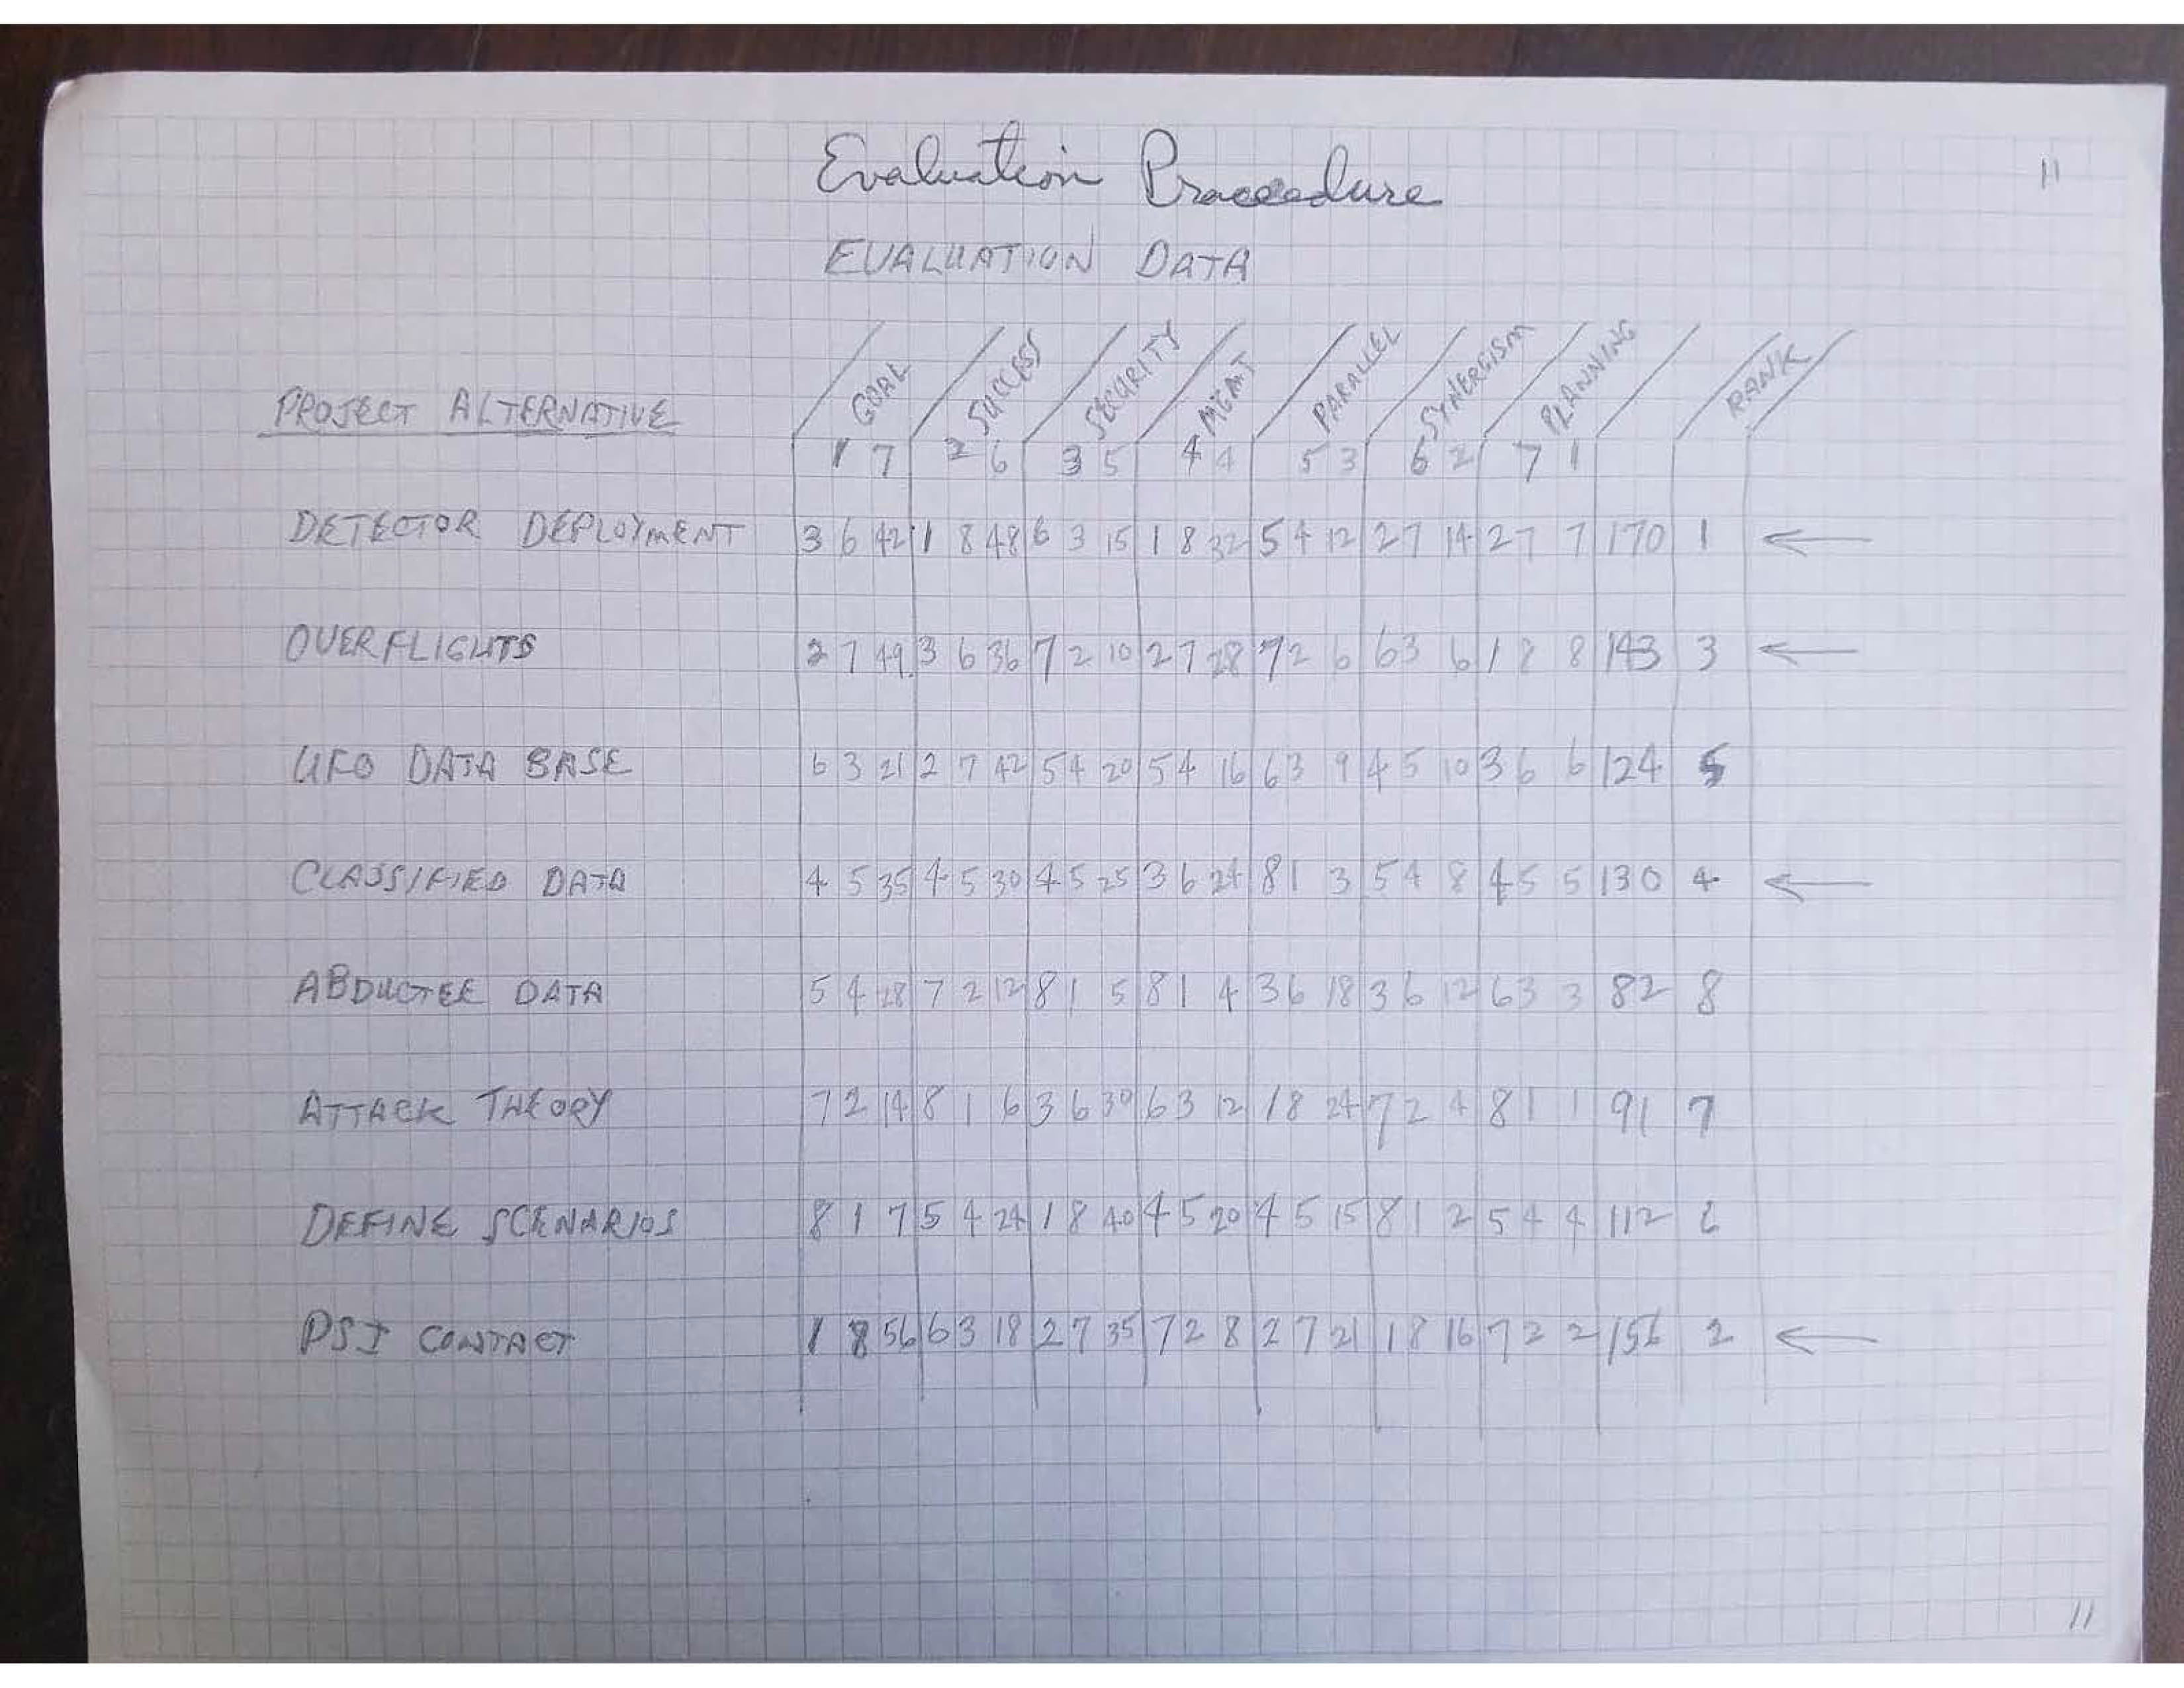 Evaluation Proceedure
11
EVALUATION DATA
PROJECT ALTERNATIVE GOAL SUCCESS SECURITY MGMT PARALLEL SYNERGISM PLANNING RANK
1 7 2 6 3 5 4 4 5 3 6 2 7 1
DETECTOR DEPLOYMENT 3 6 42 1 8 48 6 3 15 1 8 32 5 4 12 2 7 14 2 7 7 170 1 ←
OVERFLIGHTS 2 7 49 3 6 36 7 2 10 2 7 28 7 2 6 6 3 6 1 8 8 143 3 ←
UFO DATA BASE 6 3 21 2 7 42 5 4 20 5 4 16 6 3 9 4 5 10 3 6 6 124 5
CLASSIFIED DATA 4 5 35 4 5 30 4 5 25 3 6 24 8 1 3 5 4 8 4 5 5 130 4 ←
ABDUCTEE DATA 5 4 28 7 2 12 8 1 5 8 1 4 3 6 18 3 6 12 6 3 3 82 8
ATTACK THEORY 7 2 14 8 1 6 3 6 30 6 3 12 1 8 24 7 2 4 8 1 1 91 7
DEFINE SCENARIOS 8 1 7 5 4 24 1 8 40 4 5 20 4 5 15 8 1 2 5 4 4 112 6
PSI CONTACT 1 8 56 6 3 18 2 7 35 7 2 8 2 7 21 1 8 16 7 2 2 156 2 ←
11